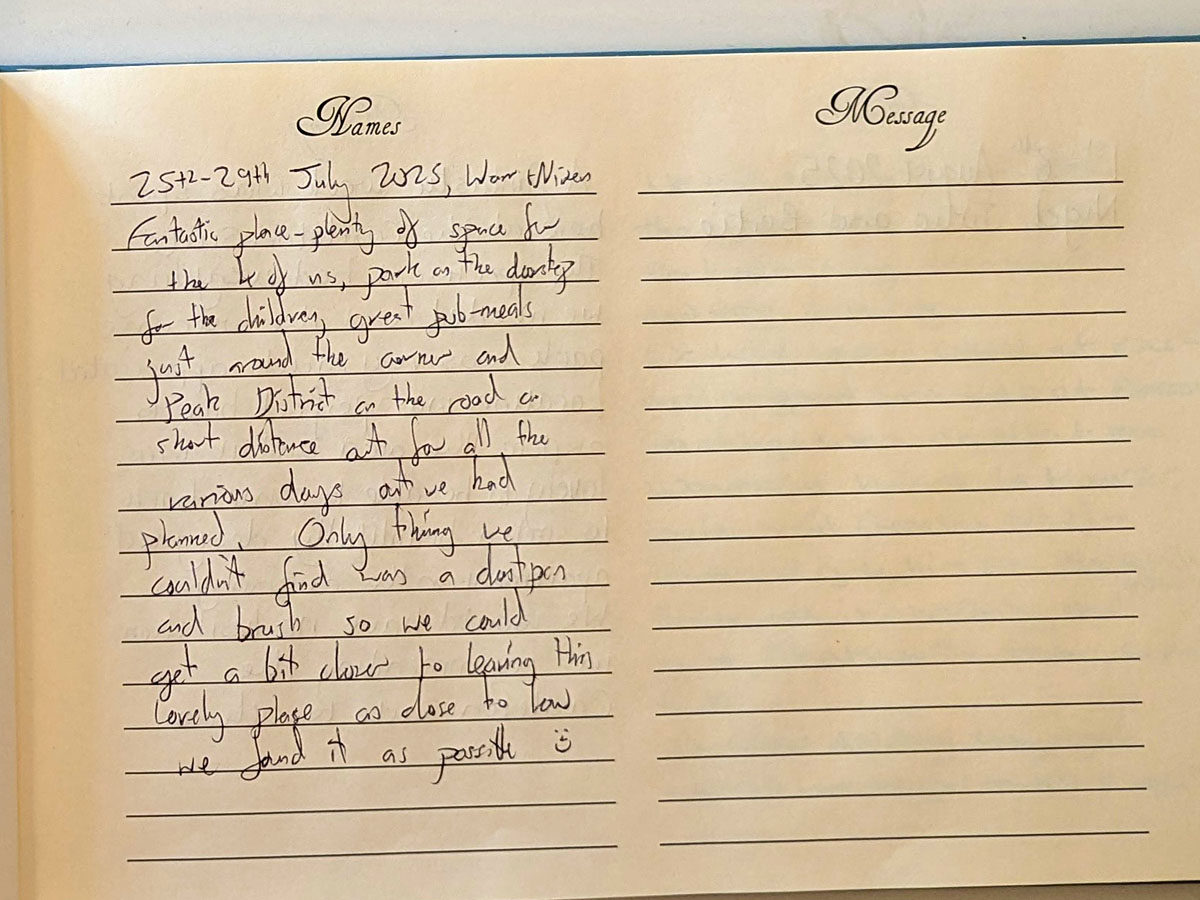 Names
Message
25th-29th July 2025,
Fantastic place - plenty of space for
the of us, park on the doorstep
for the children, great pub-meals
just around the corner and
Peak District on the road or
short distance out for all the
various days out we had
planned. Only thing we
couldn't find was a dustpan
and brush so we could
get a bit closer to leaving this
lovely place as close to how
we found it as possible